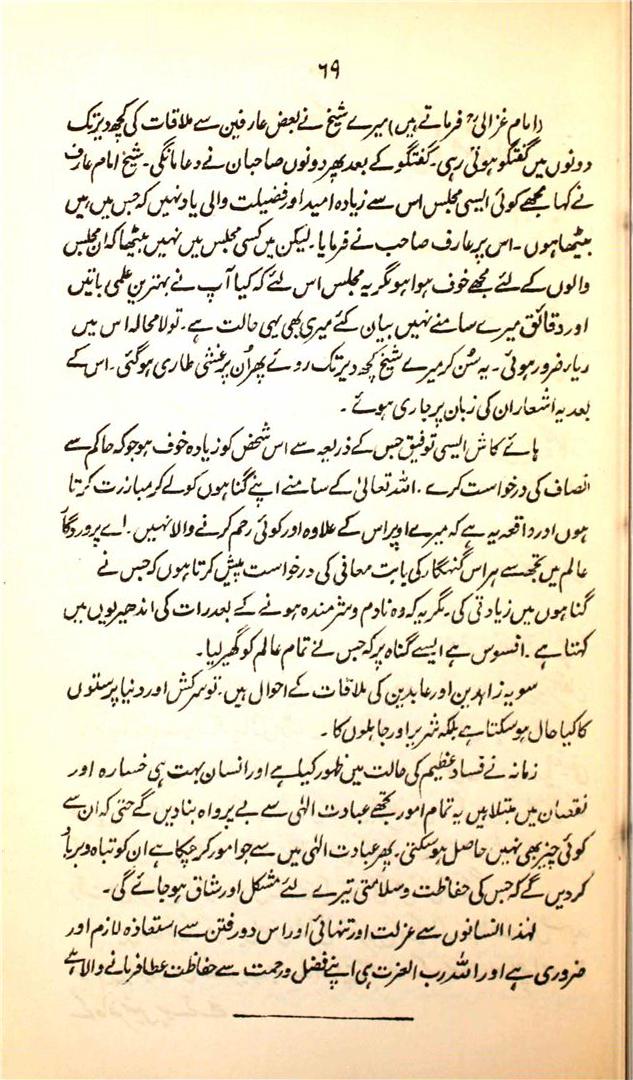 ۶۹
(امام غزالیؒ فرماتے ہیں) میرے شیخ نے بعض عارفین سے ملاقات کی کچھ دیر تک
دونوں میں گفتگو ہوتی رہی۔ گفتگو کے بعد پھر دونوں صاحبان نے دعا مانگی۔ شیخ امام عارف
نے کہا مجھے کوئی ایسی مجلس اس سے زیادہ امید اور فضیلت والی یاد نہیں کہ جس میں، میں
بیٹھا ہوں۔ اس پر عارف صاحب نے فرمایا۔ لیکن میں کسی مجلس میں نہیں بیٹھا کہ ان مجلس
والوں کے لئے مجھے خوف ہوا ہو مگر یہ مجلس اس لئے کہ کیا آپ نے بہترین علمی باتیں
اور دقائق میرے سامنے نہیں بیان کئے میری بھی یہی حالت ہے۔ تو لامحالہ اس میں
ریاء ضرور ہوئی۔ یہ سُن کر میرے شیخ کچھ دیر تک روئے پھر اُن پر غشی طاری ہو گئی۔ اس کے
بعد یہ اشعار ان کی زبان پر جاری ہوئے۔
ہائے کاش ایسی توفیق جس کے ذریعہ سے اس شخص کو زیادہ خوف ہو جو کہ حاکم سے
انصاف کی درخواست کرے۔ اللہ تعالیٰ کے سامنے اپنے گناہوں کو لے کر مبازرت کرتا
ہوں اور واقعہ یہ ہے کہ میرے اوپر اس کے علاوہ اور کوئی رحم کرنے والا نہیں۔ اے پروردگارِ
عالم میں تجھ سے ہر اس گنہگار کی بابت معافی کی درخواست پیش کرتا ہوں کہ جس نے
گناہوں میں زیادتی کی۔ مگر یہ کہ وہ نادم و شرمندہ ہونے کے بعد رات کی اندھیریوں میں
کہتا ہے۔ افسوس ہے ایسے گناہ پر کہ جس نے تمام عالم کو گھیر لیا۔
سو یہ زاہدین اور عابدین کی ملاقات کے احوال ہیں۔ تو سرکش اور دنیا پرستوں
کا کیا حال ہو سکتا ہے بلکہ شریر اور جاہلوں کا۔
زمانہ نے فساد عظیم کی حالت میں ظہور کیا ہے اور انسان بہت ہی خسارہ اور
نقصان میں مبتلا ہیں یہ تمام امور تجھے عبادت الٰہی سے بے پرواہ بنا دیں گے حتیٰ کہ ان سے
کوئی چیز بھی نہیں حاصل ہو سکتی۔ پھر عبادت الٰہی میں سے جو امور کر چکا ہے ان کو تباہ و برباد
کر دیں گے کہ جس کی حفاظت و سلامتی تیرے لئے مشکل اور شاق ہو جائے گی۔
لہٰذا انسانوں سے عزلت اور تنہائی اور اس دور فتن سے استعاذہ لازم اور
ضروری ہے اور اللہ رب العزت ہی اپنے فضل و رحمت سے حفاظت عطا فرمانے والا ہے